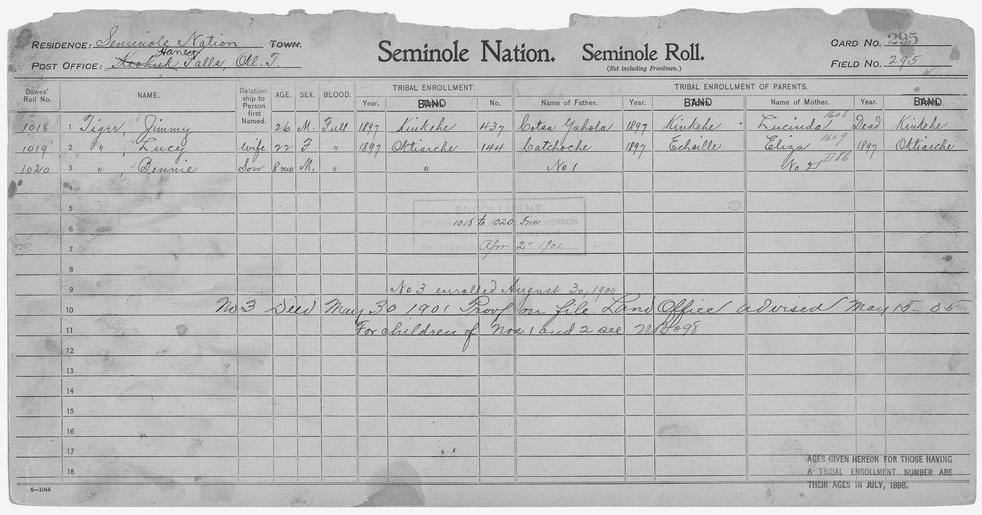 RESIDENCE: Seminole Nation TOWN.
POST OFFICE: Keokuk Haney Falls, Okl. T.
Seminole Nation. Seminole Roll.
(Not including Freedmen.)
CARD NO. 295
FIELD NO. 295
Dawes' Roll No. NAME. Relationship to Person first Named. AGE. SEX. BLOOD. TRIBAL ENROLLMENT. TRIBAL ENROLLMENT OF PARENTS.
Year. BAND No. Name of Father. Year. BAND Name of Mother. Year. BAND
1018 1 Tiger, Jimmy 26 M. Full 1897 Kinkehe 437 Cotsa Yahola 1897 Kinkehe - Lucinda 1608 Dead Kinkehe
1019 2 " , Lucy wife 22 F " 1897 Oktiarche 144 Catchoche 1897 Echoille Eliza 1609 1897 Oktiarche
1020 3 " , Bennie Son 8 mo M. " " No 1 No 2
4
5
ENROLLMENT
6 1018 to 1020 Inc HEREON
7 Apr 2" 1901
8
9 No 3 enrolled August 30, 1900
10 No 3 Died May 30 1901 Proof on file Land Office advised May 15-05
11 For children of Nos 1 and 2 see NB 498
12
13
14
15
16
17
18
AGES GIVEN HEREON FOR THOSE HAVING
A TRIBAL ENROLLMENT NUMBER ARE
THEIR AGES IN JULY, 1898.
6-1044